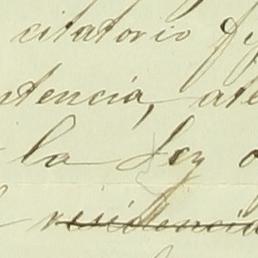 citatorio
ntencia, ate
la Ley
residencia